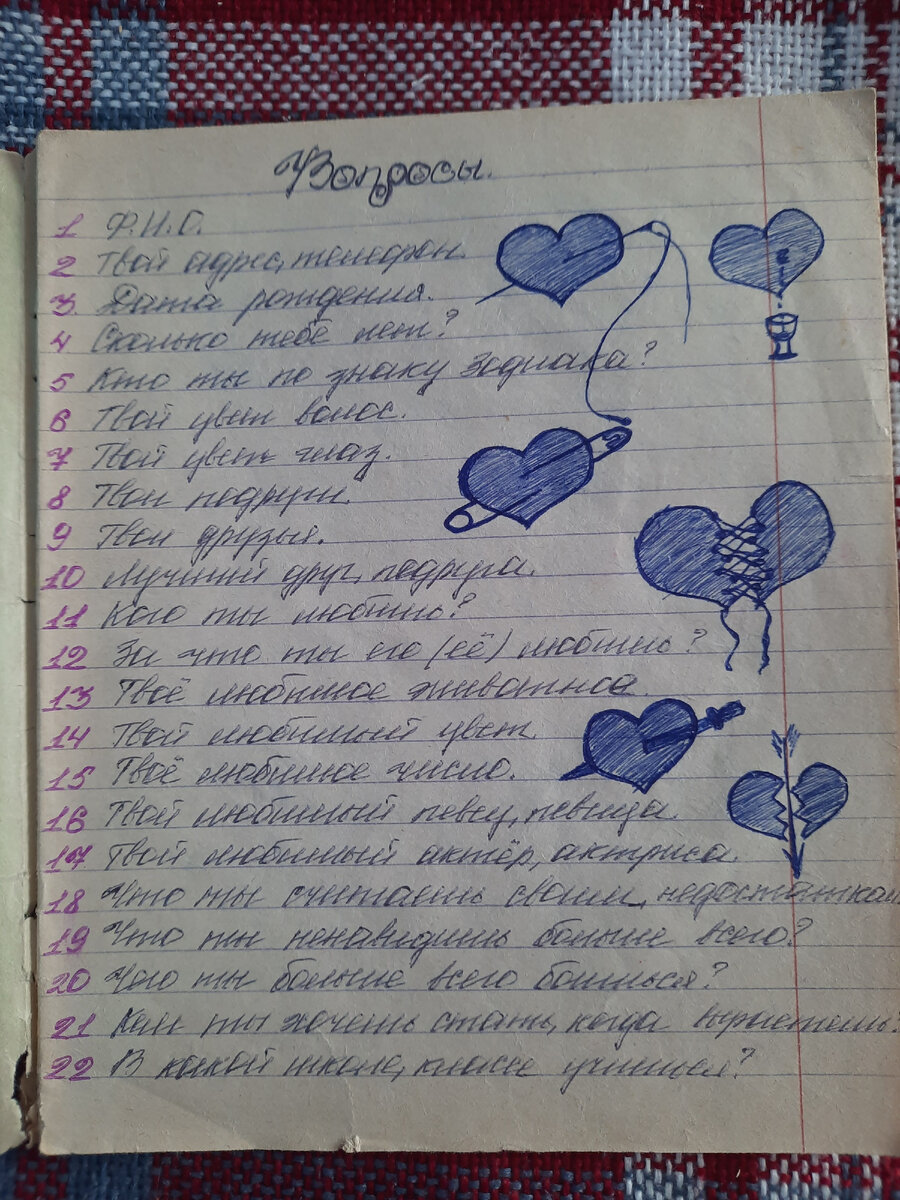 Вопросы.
1 Ф.И.О.
2 Твой адрес, телефон.
3 Дата рождения.
4 Сколько тебе лет?
5 Кто ты по знаку Зодиака?
6 Твой цвет волос.
7 Твой цвет глаз.
8 Твои подруги.
9 Твои друзья.
10 Лучший друг, подруга.
11 Кого ты любишь?
12 За что ты его (её) любишь?
13 Твоё любимое животное.
14 Твой любимый цвет.
15 Твоё любимое число.
16 Твой любимый певец, певица.
17 Твой любимый актёр, актриса.
18 Что ты считаешь своим, недостатком
19 Что ты ненавидишь больше всего?
20 Чего ты больше всего боишься?
21 Кем ты хочешь стать, когда вырастешь?
22 В какой школе, классе учишься?